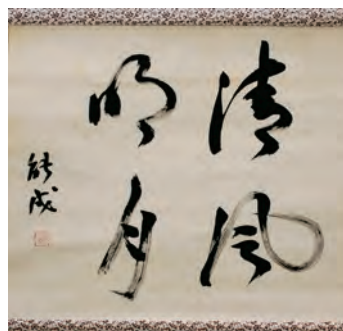 清風
明月
能成